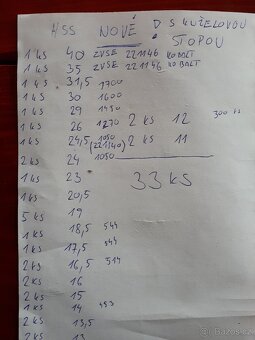 HSS NOVÉ D S KUŽELOVOU
STOPOU
1 KS 40 ZVSE 221146 KOBALT
1 KS 35 ZVSE 221146 KOBALT
1 KS 31,5 1700
1 KS 30 1600
1 KS 29 1450
1 KS 26 1270 2 KS 12 300 Kč
1 KS 24,5 1050 (221140) 2 KS 11
2 KS 24 1050
1 KS 23 33 KS
1 KS 20,5
5 KS 19
1 KS 18,5 544
1 KS 17,5 544
2 KS 16,5 514
2 KS 16
2 KS 15
1 KS 14 453
2 KS 13,5
2 KS 13